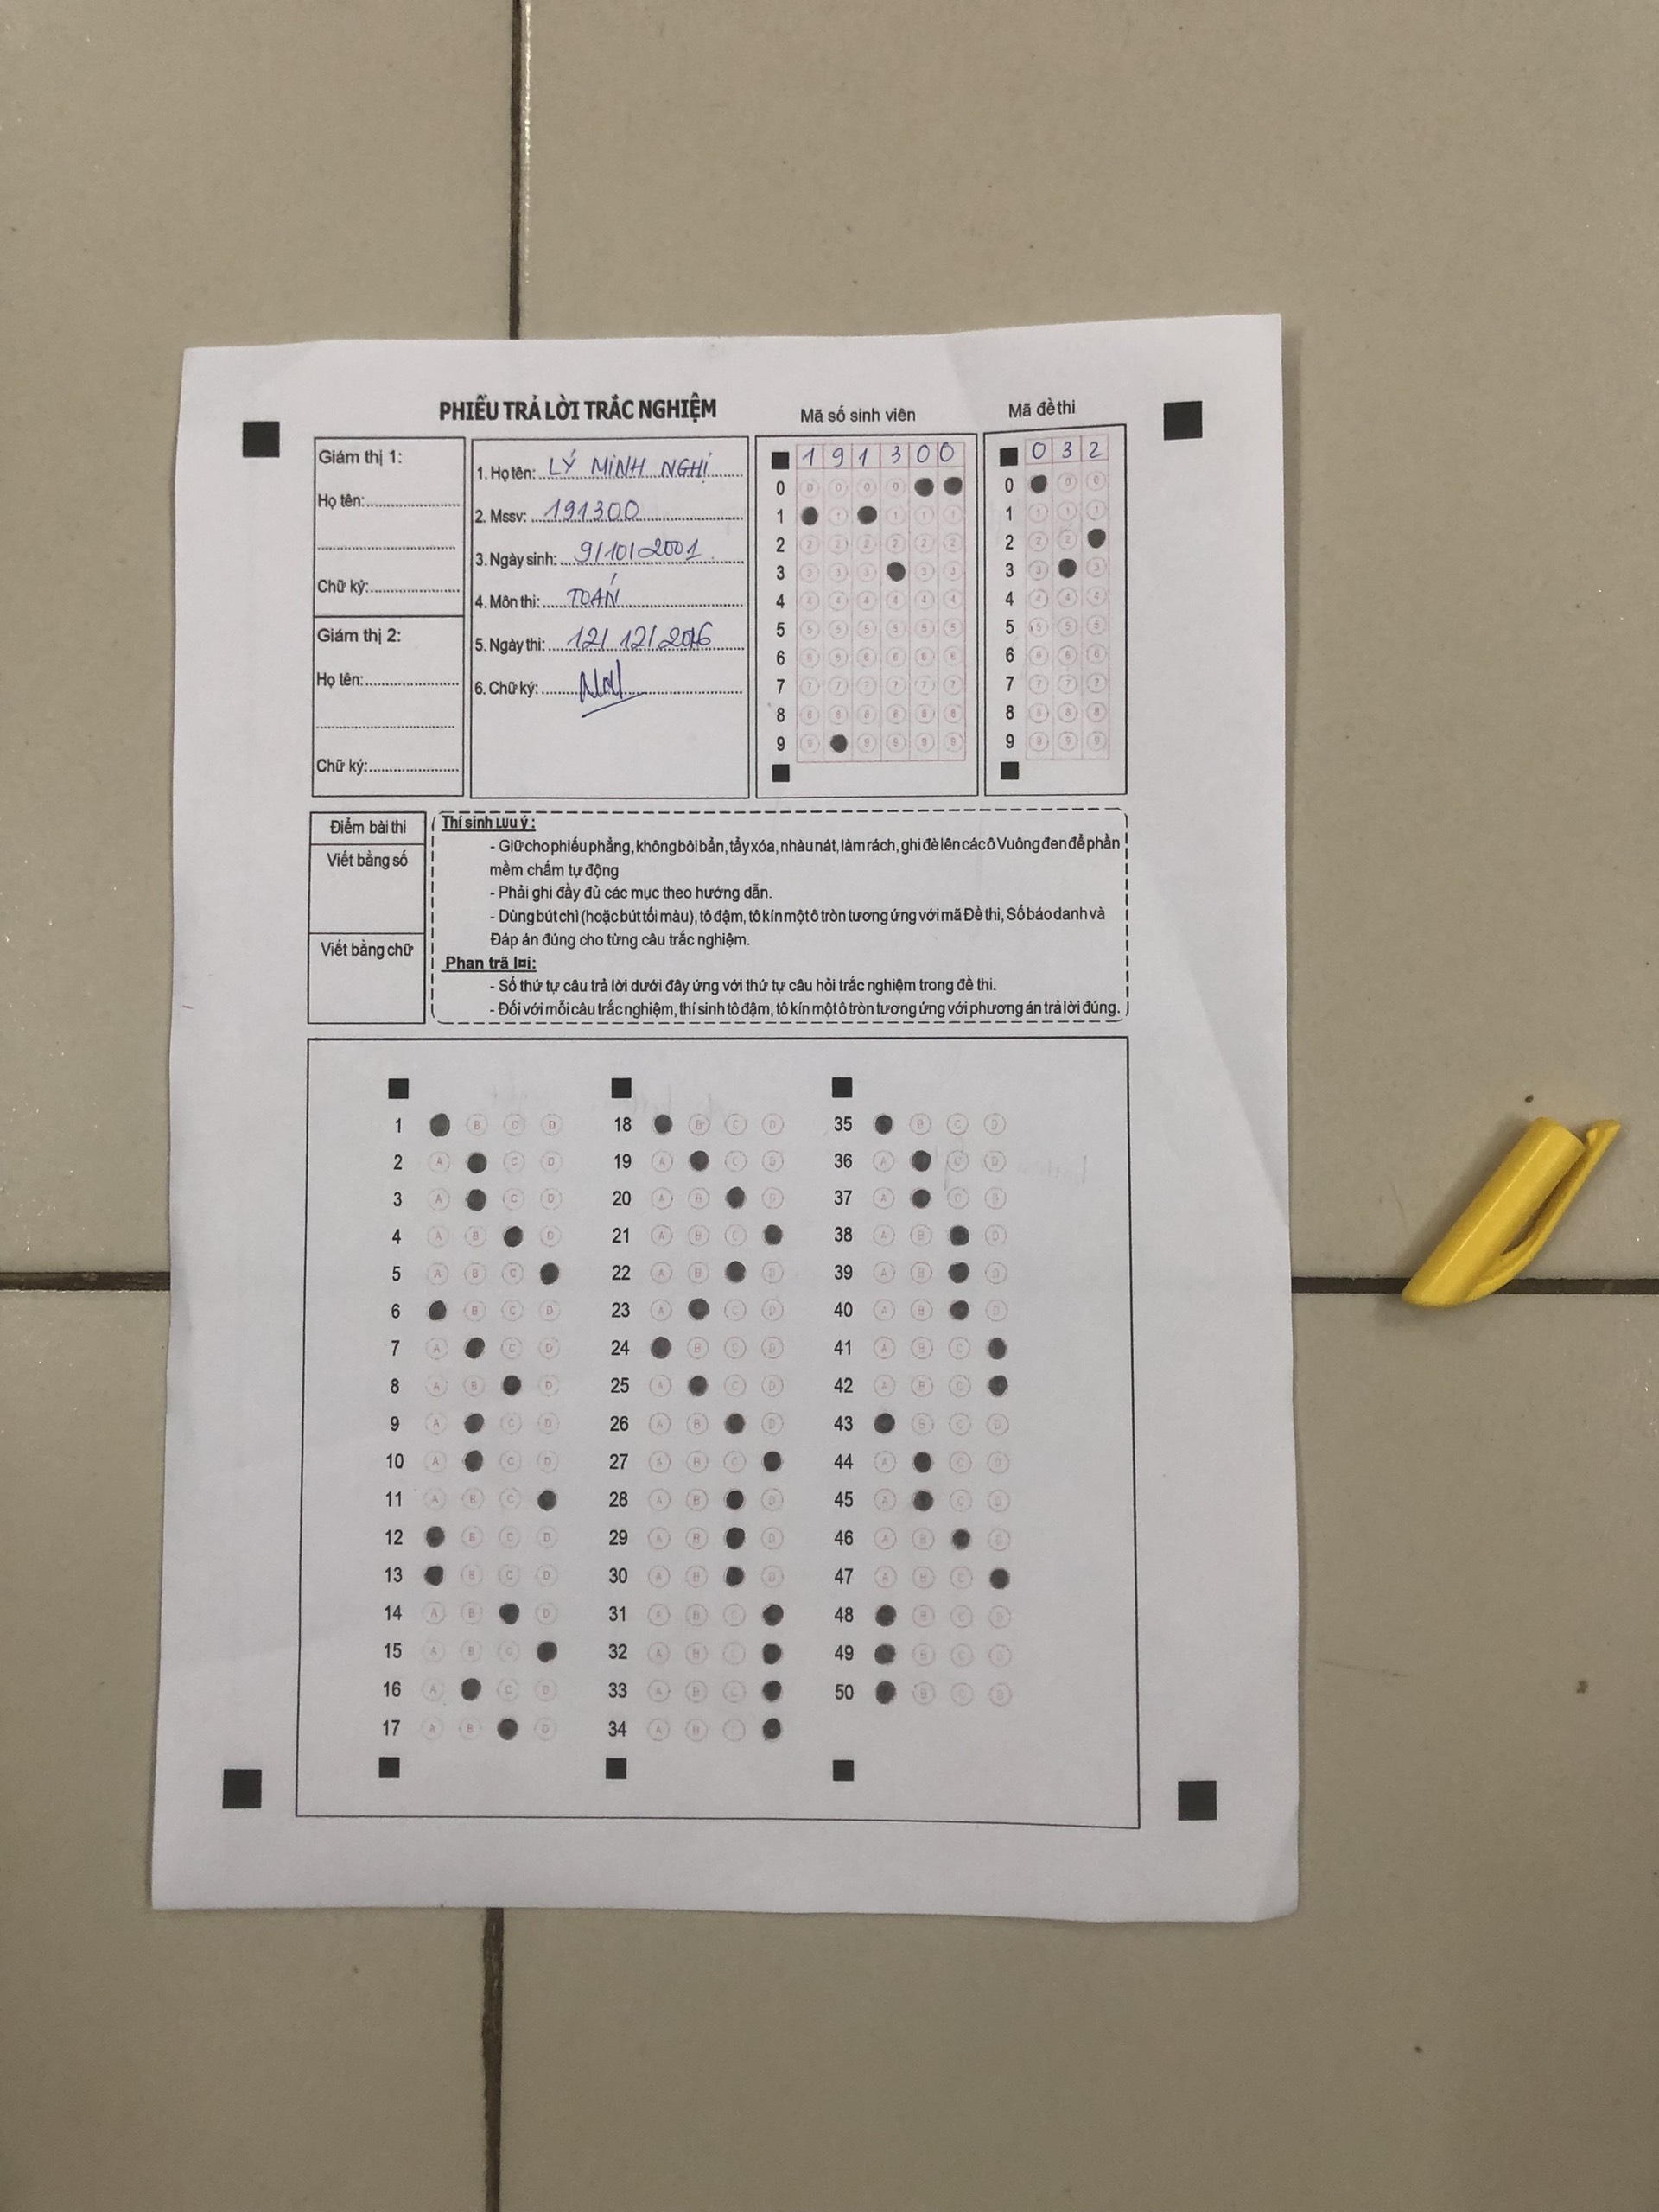 PHIẾU TRẢ LỜI TRẮC NGHIỆM
Giám thị 1:
Họ tên:
Chữ ký:
Giám thị 2:
Họ tên:
Chữ ký:
1. Họ tên: LÝ MINH NGHỊ
2. Mssv: 191300
3. Ngày sinh: 9/10/2001
4. Môn thi: TOÁN
5. Ngày thi: 12/12/2016
6. Chữ ký:
Mã số sinh viên
1 9 1 3 0 0
0
1
2
3
4
5
6
7
8
9
Mã đề thi
0 3 2
0
1
2
3
4
5
6
7
8
9
Điểm bài thi
Viết bằng số
Viết bằng chữ
Thí sinh Lưu ý:
- Giữ cho phiếu phẳng, không bôi bẩn, tẩy xóa, nhàu nát, làm rách, ghi đè lên các ô Vuông đen để phần
mềm chấm tự động
- Phải ghi đầy đủ các mục theo hướng dẫn.
- Dùng bút chì (hoặc bút tối màu), tô đậm, tô kín một ô tròn tương ứng với mã Đề thi, Số báo danh và
Đáp án đúng cho từng câu trắc nghiệm.
Phan trã l¤i:
- Số thứ tự câu trả lời dưới đây ứng với thứ tự câu hỏi trắc nghiệm trong đề thi.
- Đối với mỗi câu trắc nghiệm, thí sinh tô đậm, tô kín một ô tròn tương ứng với phương án trả lời đúng.
1 B C D
2 A C D
3 A C D
4 A B D
5 A B C
6 B C D
7 A C D
8 A B D
9 A C D
10 A C D
11 A B C
12 B C D
13 B C D
14 A B D
15 A B C
16 A C D
17 A B D
18 B C D
19 A C D
20 A B D
21 A B C
22 A B D
23 A C D
24 B C D
25 A C D
26 A B D
27 A B C
28 A B D
29 A B D
30 A B D
31 A B C
32 A B C
33 A B C
34 A B C
35 B C D
36 A C D
37 A C D
38 A B D
39 A B D
40 A B D
41 A B C
42 A B C
43 B C D
44 A C D
45 A C D
46 A B D
47 A B C
48 B C D
49 B C D
50 B C D